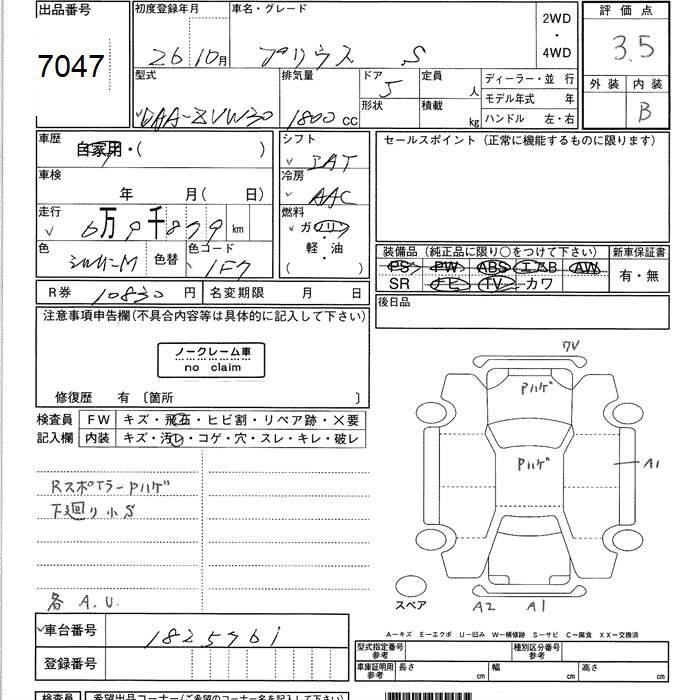 出品番号 初度登録年月 車名・グレード 2WD 評価点
7047 26 10月 プリウス S ・ 3.5
4WD
型式 排気量 ドア 定員 ディーラー・並 行 外装 内装
5 人 モデル年式 年 B
DAA-ZVW30 1800 cc 形状 積載 kg ハンドル 左・右
車歴 シフト セールスポイント (正常に機能するものに限ります)
自家用・( ) IAT
車検 冷房
年 月(日) AAC
走行 燃料
6万9千879 km ガソリン
色 色替 色コード 軽・油 装備品 (純正品に限り○をつけて下さい) 新車保証書
シルバーM 1F7 ( ) PS PW ABS エアB AW 有・無
R券 10830 円 名変期限 月 日 SR ナビ TV カワ
後日品
注意事項申告欄(不具合内容等は具体的に記入して下さい)
ノークレーム車
no claim
修復歴 有 〔箇所 〕
検査員 FW キズ・飛石・ヒビ割・リペア跡・×要
記入欄 内装 キズ・汚レ・コゲ・穴・スレ・キレ・破レ
Pハゲ
Pハゲ
A1
RスポイラーPハゲ
下廻り小S
各 A.U.
スペア A2 A1
車台番号
A―キズ E―エクボ U―凹み W―補修跡 S―サビ C―腐食 XX―交換済
登録番号 型式指定番号 参考 種別区分番号 参考
車庫証明用 参考 長さ cm 幅 cm 高さ cm
検査員 希望出品コーナー(ご希望のコーナー名を記入して下さい)